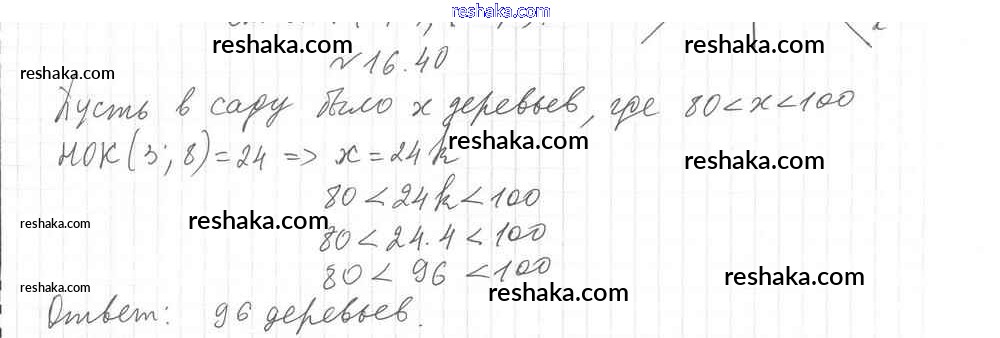 reshaka.com
reshaka.com reshaka.com
№16.40
reshaka.com
Пусть в саду было x деревьев, где 80<x<100
reshaka.com
НОК(3; 8)=24 => x=24k
reshaka.com
80<24k<100
reshaka.com reshaka.com
80<24·4<100
80<96<100
reshaka.com
reshaka.com reshaka.com
Ответ: 96 деревьев.